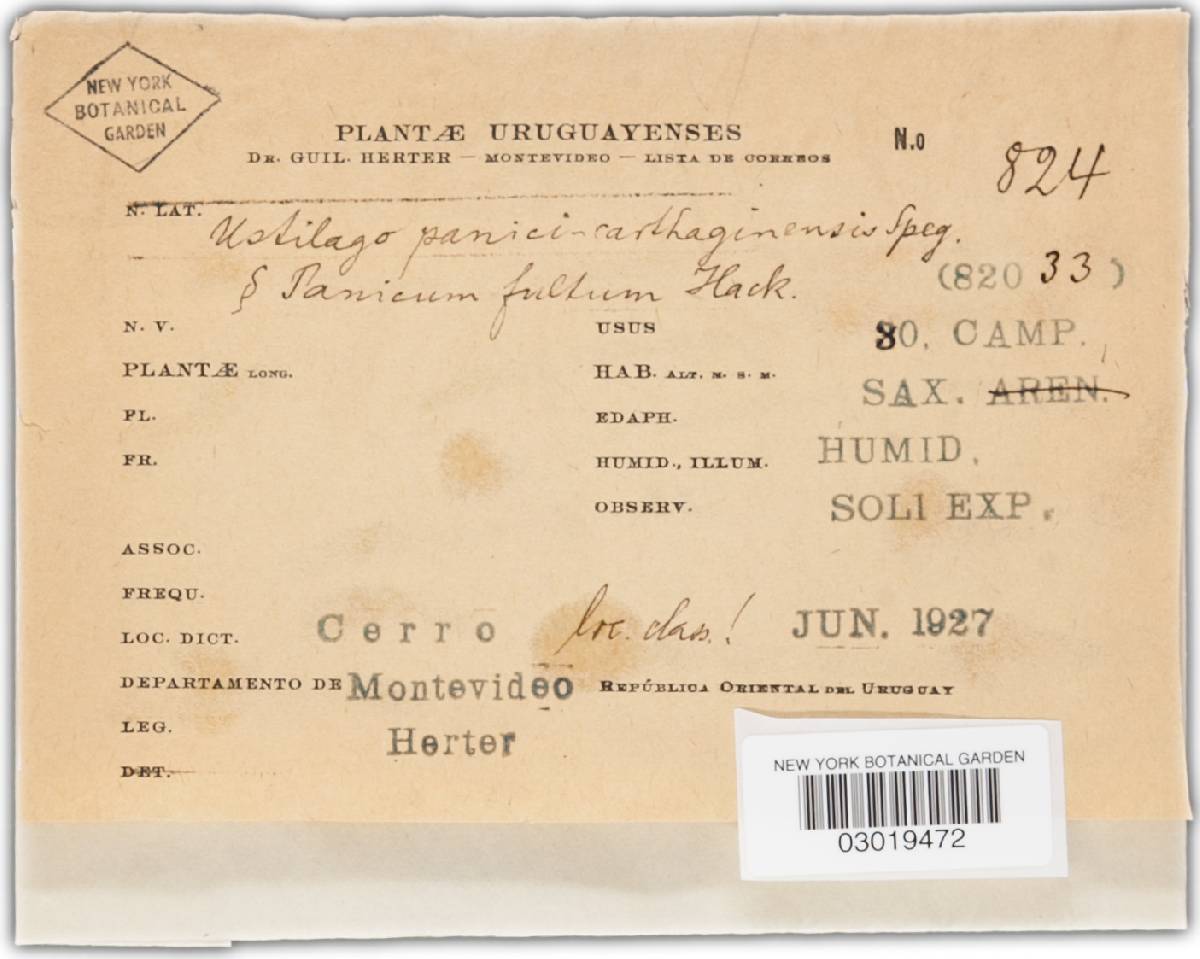 NEW YORK
BOTANICAL
GARDEN
PLANTÆ URUGUAYENSES
DR. GUIL. HERTER — MONTEVIDEO — LISTA DE CORREOS
N.o 824
N. LAT. Ustilago panici-carthaginensis Speg.
§ Panicum fultum Hack.
(820 33)
N. V.
USUS
30, CAMP.
PLANTÆ LONG.
HAB. ALT. M. S. M.
SAX. AREN.
PL.
EDAPH.
FR.
HUMID., ILLUM.
HUMID.
OBSERV.
SOLI EXP.
ASSOC.
FREQU.
LOC. DICT. Cerro loc. class.! JUN. 1927
DEPARTAMENTO DE Montevideo REPÚBLICA ORIENTAL DEL URUGUAY
LEG. Herter
DET.
NEW YORK BOTANICAL GARDEN
03019472